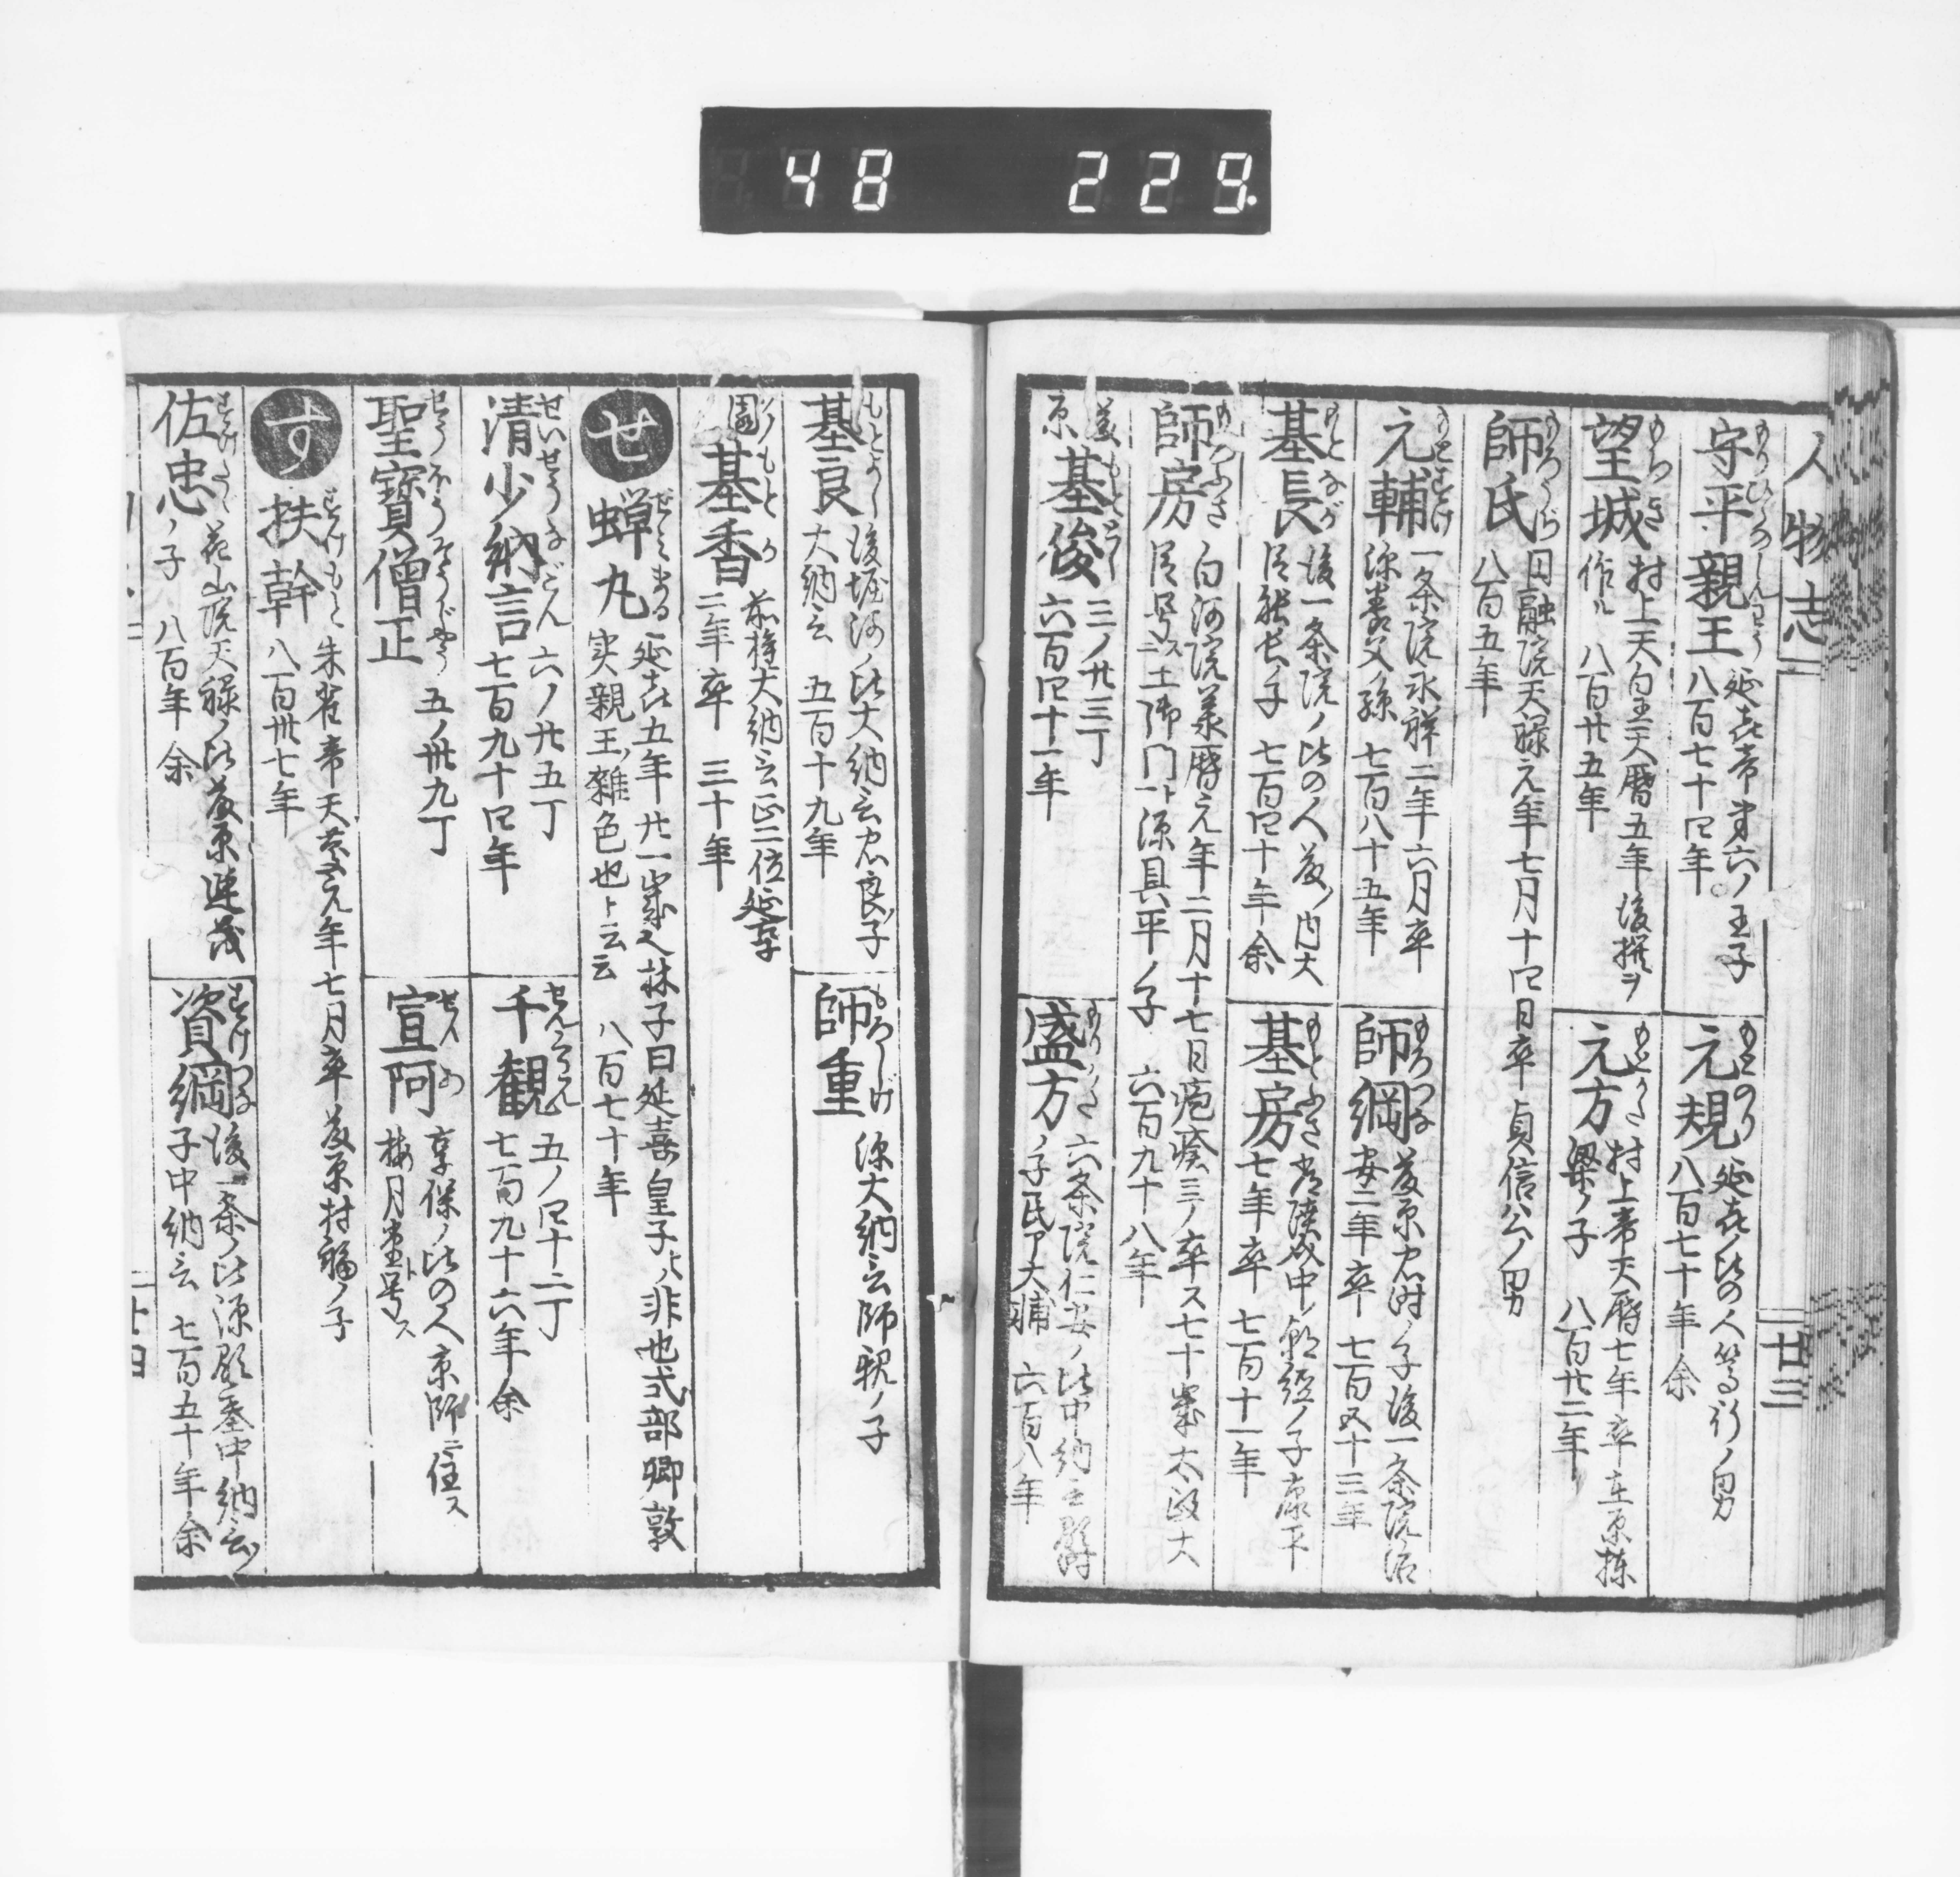 48 229.
人物志
廿三
守平親王
延㐂帝第六ノ王子
八百七十四年
元規
延㐂比の人等行ノ男
八百七十年余
望城
村上天皇天暦五年後撰ヲ
作ル 八百廿五年
元方
村上帝天暦七年卒在原棟
梁ノ子 八百廿二年
師氏
円融院天禄元年七月十四日卒 貞信公ノ男
八百五年
元輔
一条院永祚二年六月卒
深養父ノ孫 七百八十五年
師綱
藤原忠ノ子後一条院治
安二年卒 七百五十三年
基長
後一条院ノ比の人藤ノ内大
臣能長子 七百四十年余
基房
常陸介中ノ朝経ノ子康平
七年卒 七百十一年
師房
白河院承暦元年二月十七日疱瘡ニテ卒ス七十歳太政大
臣号ス土御門ト源具平ノ子 六百九十八年
藤原基俊
三ノ廿三丁
六百四十一年
盛方
六条院仁安ノ比中納言顕時
ノ子民ア大輔 六百八年
基良
後堀河ノ比大納言忠良ノ子
大納言 五百十九年
師重
源大納言師親ノ子
園基香
前権大納言正二位延享
二年卒 三十年
せ
蝉丸
延㐂五年廿一歳 林子曰延喜皇子ハ非也式部卿敦
実親王ノ雑色也ト云云 八百七十年
清少納言
六ノ廿五丁
七百九十四年
千観
五ノ四十二丁
七百九十六年余
聖寳僧正
五ノ卅九丁
宣阿
享保ノ比の人京師ニ住ス
梅月堂ト号ス
す
扶幹
朱雀帝天慶元年七月卒藤原村椙ノ子
八百卅七年
佐忠
花山院天禄ノ比藤原連茂
ノ子 八百年余
資綱
後一条ノ比源顕基中納言ノ
子中納言 七百五十年余